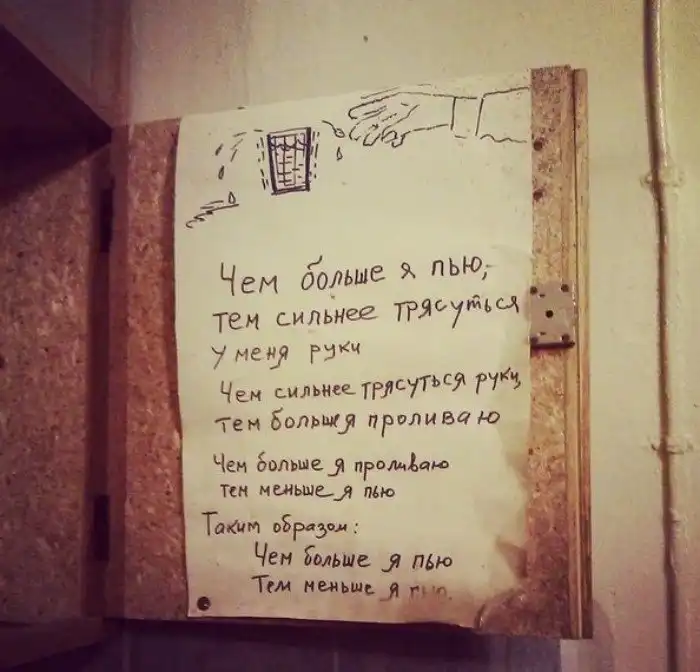 Чем больше я пью,
тем сильнее трясуться
у меня руки
Чем сильнее трясуться руки,
тем больше я проливаю
Чем больше я проливаю
тем меньше я пью
Таким образом:
Чем больше я пью
Тем меньше я пью.